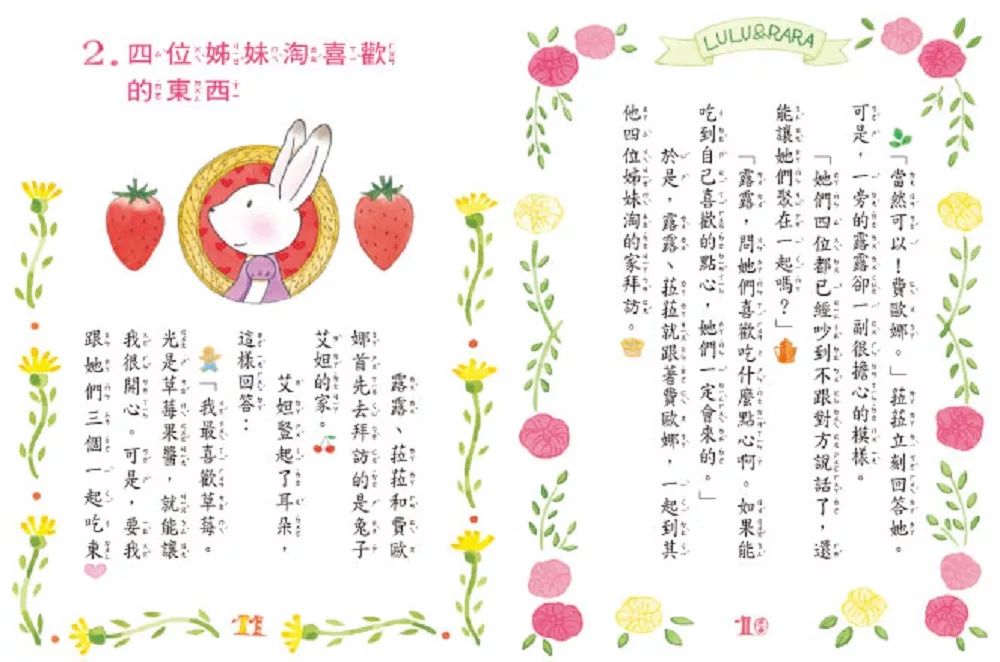 LULU&RARA
「當然可以！費歐娜。」菈菈立刻回答她。
可是，一旁的露露卻一副很擔心的模樣。
「她們四位都已經吵到不跟對方說話了，還
能讓她們聚在一起嗎？」
「露露，問她們喜歡吃什麼點心啊。如果能
吃到自己喜歡的點心，她們一定會來的。」
於是，露露、菈菈就跟著費歐娜，一起到其
他四位姊妹淘的家拜訪。
10
2.四位姊妹淘喜歡
的東西
露露、菈菈和費歐
娜首先去拜訪的是兔子
艾妲的家。
艾妲豎起了耳朵，
這樣回答：
「我最喜歡草莓。
光是草莓果醬，就能讓
我很開心。可是，要我
跟她們三個一起吃東
11